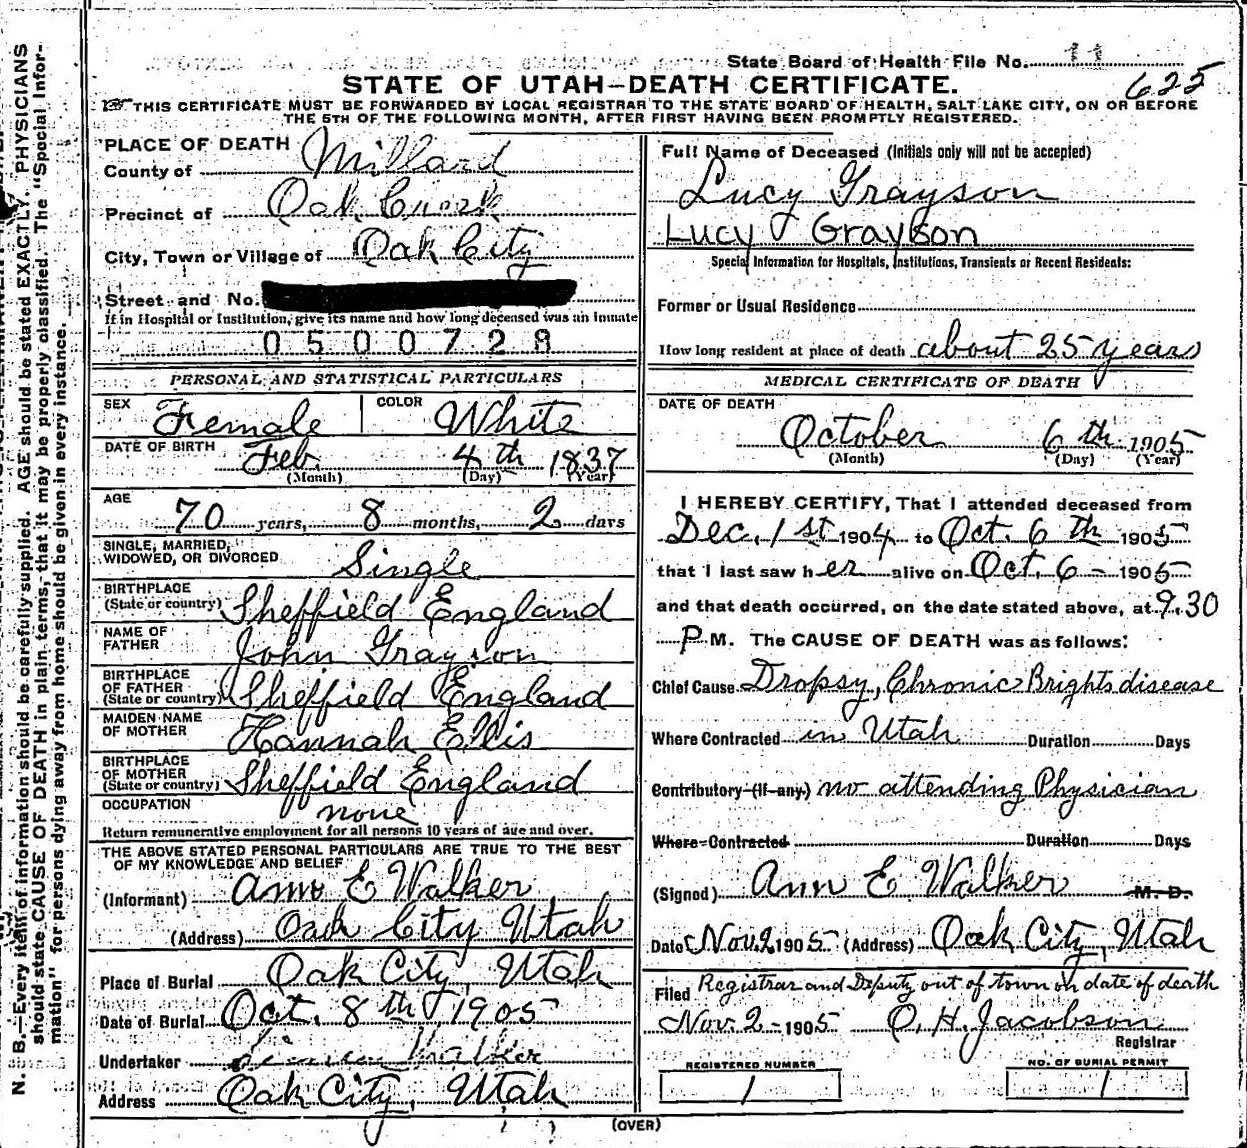 State Board of Health File No. 11
625
STATE OF UTAH—DEATH CERTIFICATE.
THIS CERTIFICATE MUST BE FORWARDED BY LOCAL REGISTRAR TO THE STATE BOARD OF HEALTH, SALT LAKE CITY, ON OR BEFORE
THE 5TH OF THE FOLLOWING MONTH, AFTER FIRST HAVING BEEN PROMPTLY REGISTERED.
N. B.—Every item of information should be carefully supplied. AGE should be stated EXACTLY. PHYSICIANS
should state CAUSE OF DEATH in plain terms, that it may be properly classified. The "Special Infor-
mation" for persons dying away from home should be given in every instance.
PLACE OF DEATH
County of Millard
Precinct of Oak Creek
City, Town or Village of Oak City
Street and No.
If in Hospital or Institution, give its name and how long deceased was an Inmate
0500728
PERSONAL AND STATISTICAL PARTICULARS
SEX Female COLOR White
DATE OF BIRTH Feb. 4th 1837
(Month) (Day) (Year)
AGE
70 years, 8 months, 2 days
SINGLE, MARRIED,
WIDOWED, OR DIVORCED Single
BIRTHPLACE
(State or country) Sheffield England
NAME OF
FATHER John Grayson
BIRTHPLACE
OF FATHER
(State or country) Sheffield England
MAIDEN NAME
OF MOTHER Hannah Ellis
BIRTHPLACE
OF MOTHER
(State or country) Sheffield England
OCCUPATION none
Return remunerative employment for all persons 10 years of age and over.
THE ABOVE STATED PERSONAL PARTICULARS ARE TRUE TO THE BEST
OF MY KNOWLEDGE AND BELIEF
(Informant) Ann E Walker
(Address) Oak City Utah
Place of Burial Oak City, Utah
Date of Burial Oct. 8th 1905
Undertaker Walker
Address Oak City, Utah
Full Name of Deceased (Initials only will not be accepted)
Lucy Grayson
Lucy Grayson
Special Information for Hospitals, Institutions, Transients or Recent Residents:
Former or Usual Residence
How long resident at place of death about 25 years
MEDICAL CERTIFICATE OF DEATH
DATE OF DEATH
October 6th 1905
(Month) (Day) (Year)
I HEREBY CERTIFY, That I attended deceased from
Dec. 1st 1904 to Oct. 6th 1905
that I last saw her alive on Oct. 6- 1905
and that death occurred, on the date stated above, at 9.30
P.M. The CAUSE OF DEATH was as follows:
Chief Cause Dropsy, Chronic Brights disease
Where Contracted in Utah Duration Days
Contributory (If any) no attending Physician
Where Contracted Duration Days
(Signed) Ann E Walker M. D.
Date Nov. 2 1905 (Address) Oak City, Utah
Filed Registrar and Deputy out of town on date of death
Nov. 2- 1905 O. H. Jacobson
Registrar
REGISTERED NUMBER
1
NO. OF BURIAL PERMIT
1
(OVER)